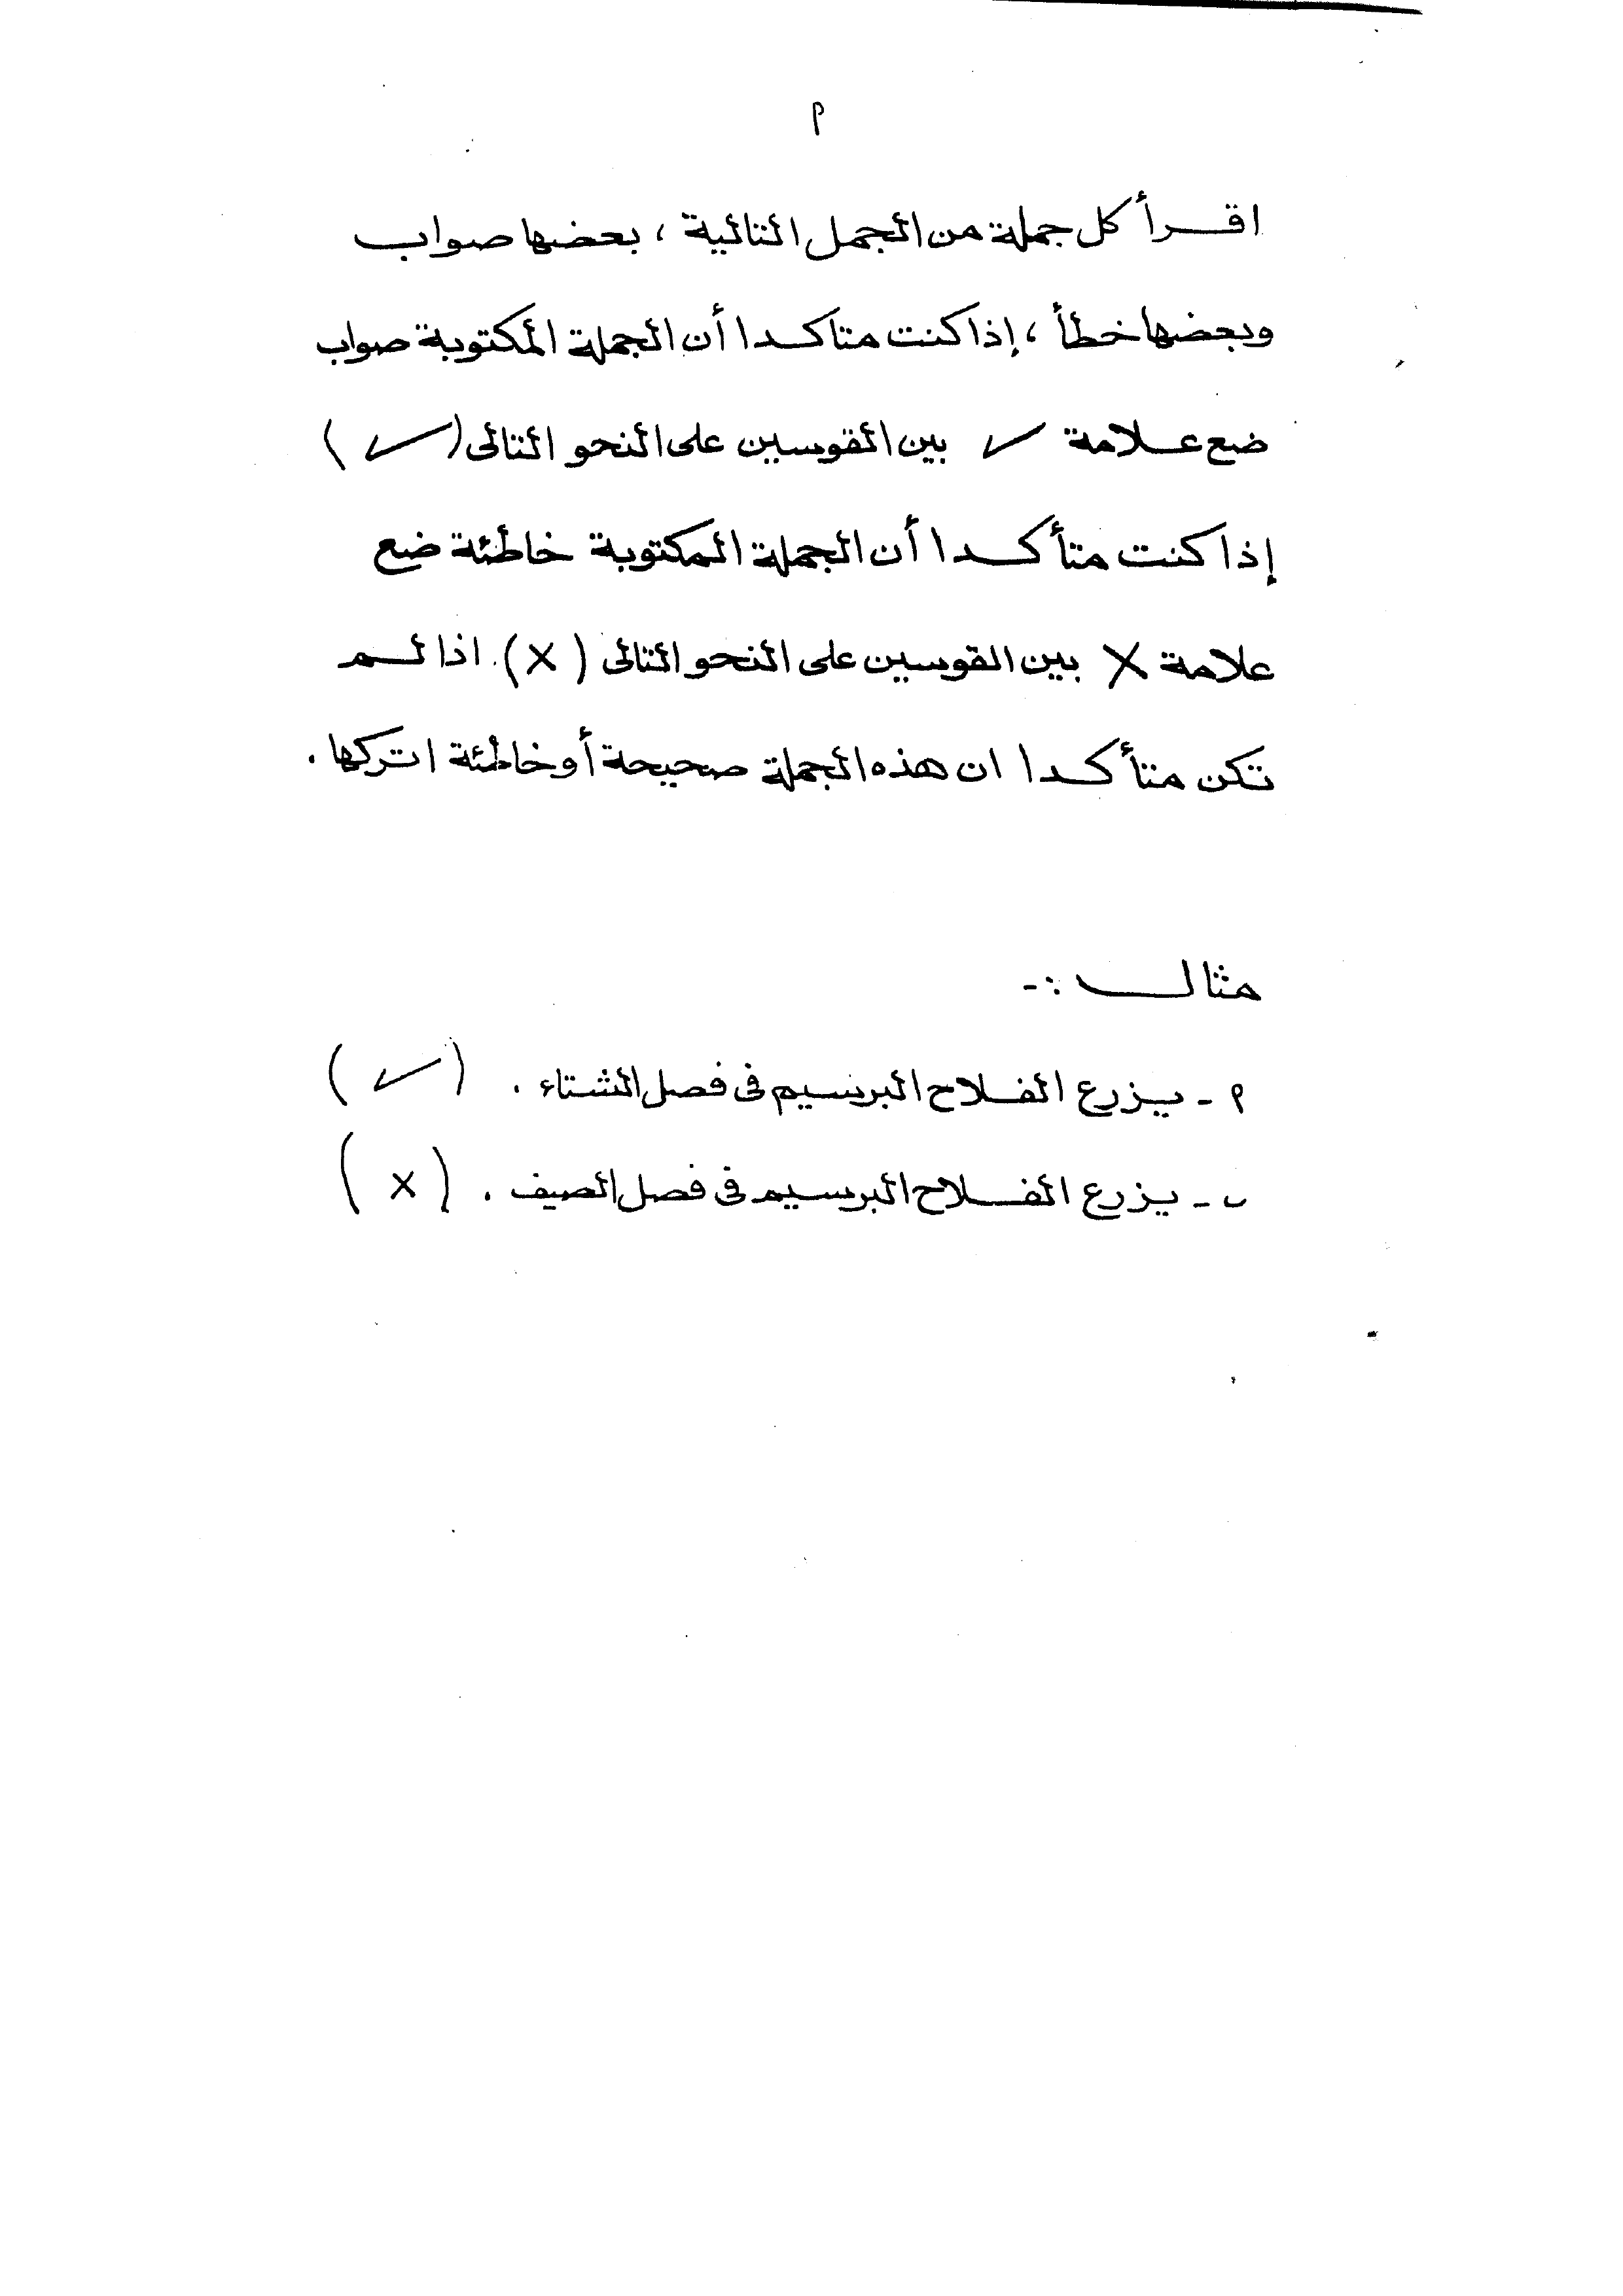 م
اقرأ كل جملة من الجمل التالية ، بعضها صواب
وبعضها خطأ ، إذا كنت متاكدا أن الجملة المكتوبة صواب
ضع علامة ✓ بين القوسين على النحو التالى ( ✓ )
إذا كنت متأكدا أن الجملة المكتوبة خاطئة ضع
علامة X بين القوسين على النحو التالى ( X ) . اذا لم
تكن متأكدا ان هذه الجملة صحيحة أو خاطئة اتركها .
مثال :-
م - يزرع الفلاح البرسيم فى فصل الشتاء . ( ✓ )
ب - يزرع الفلاح البرسيم فى فصل الصيف . ( X )